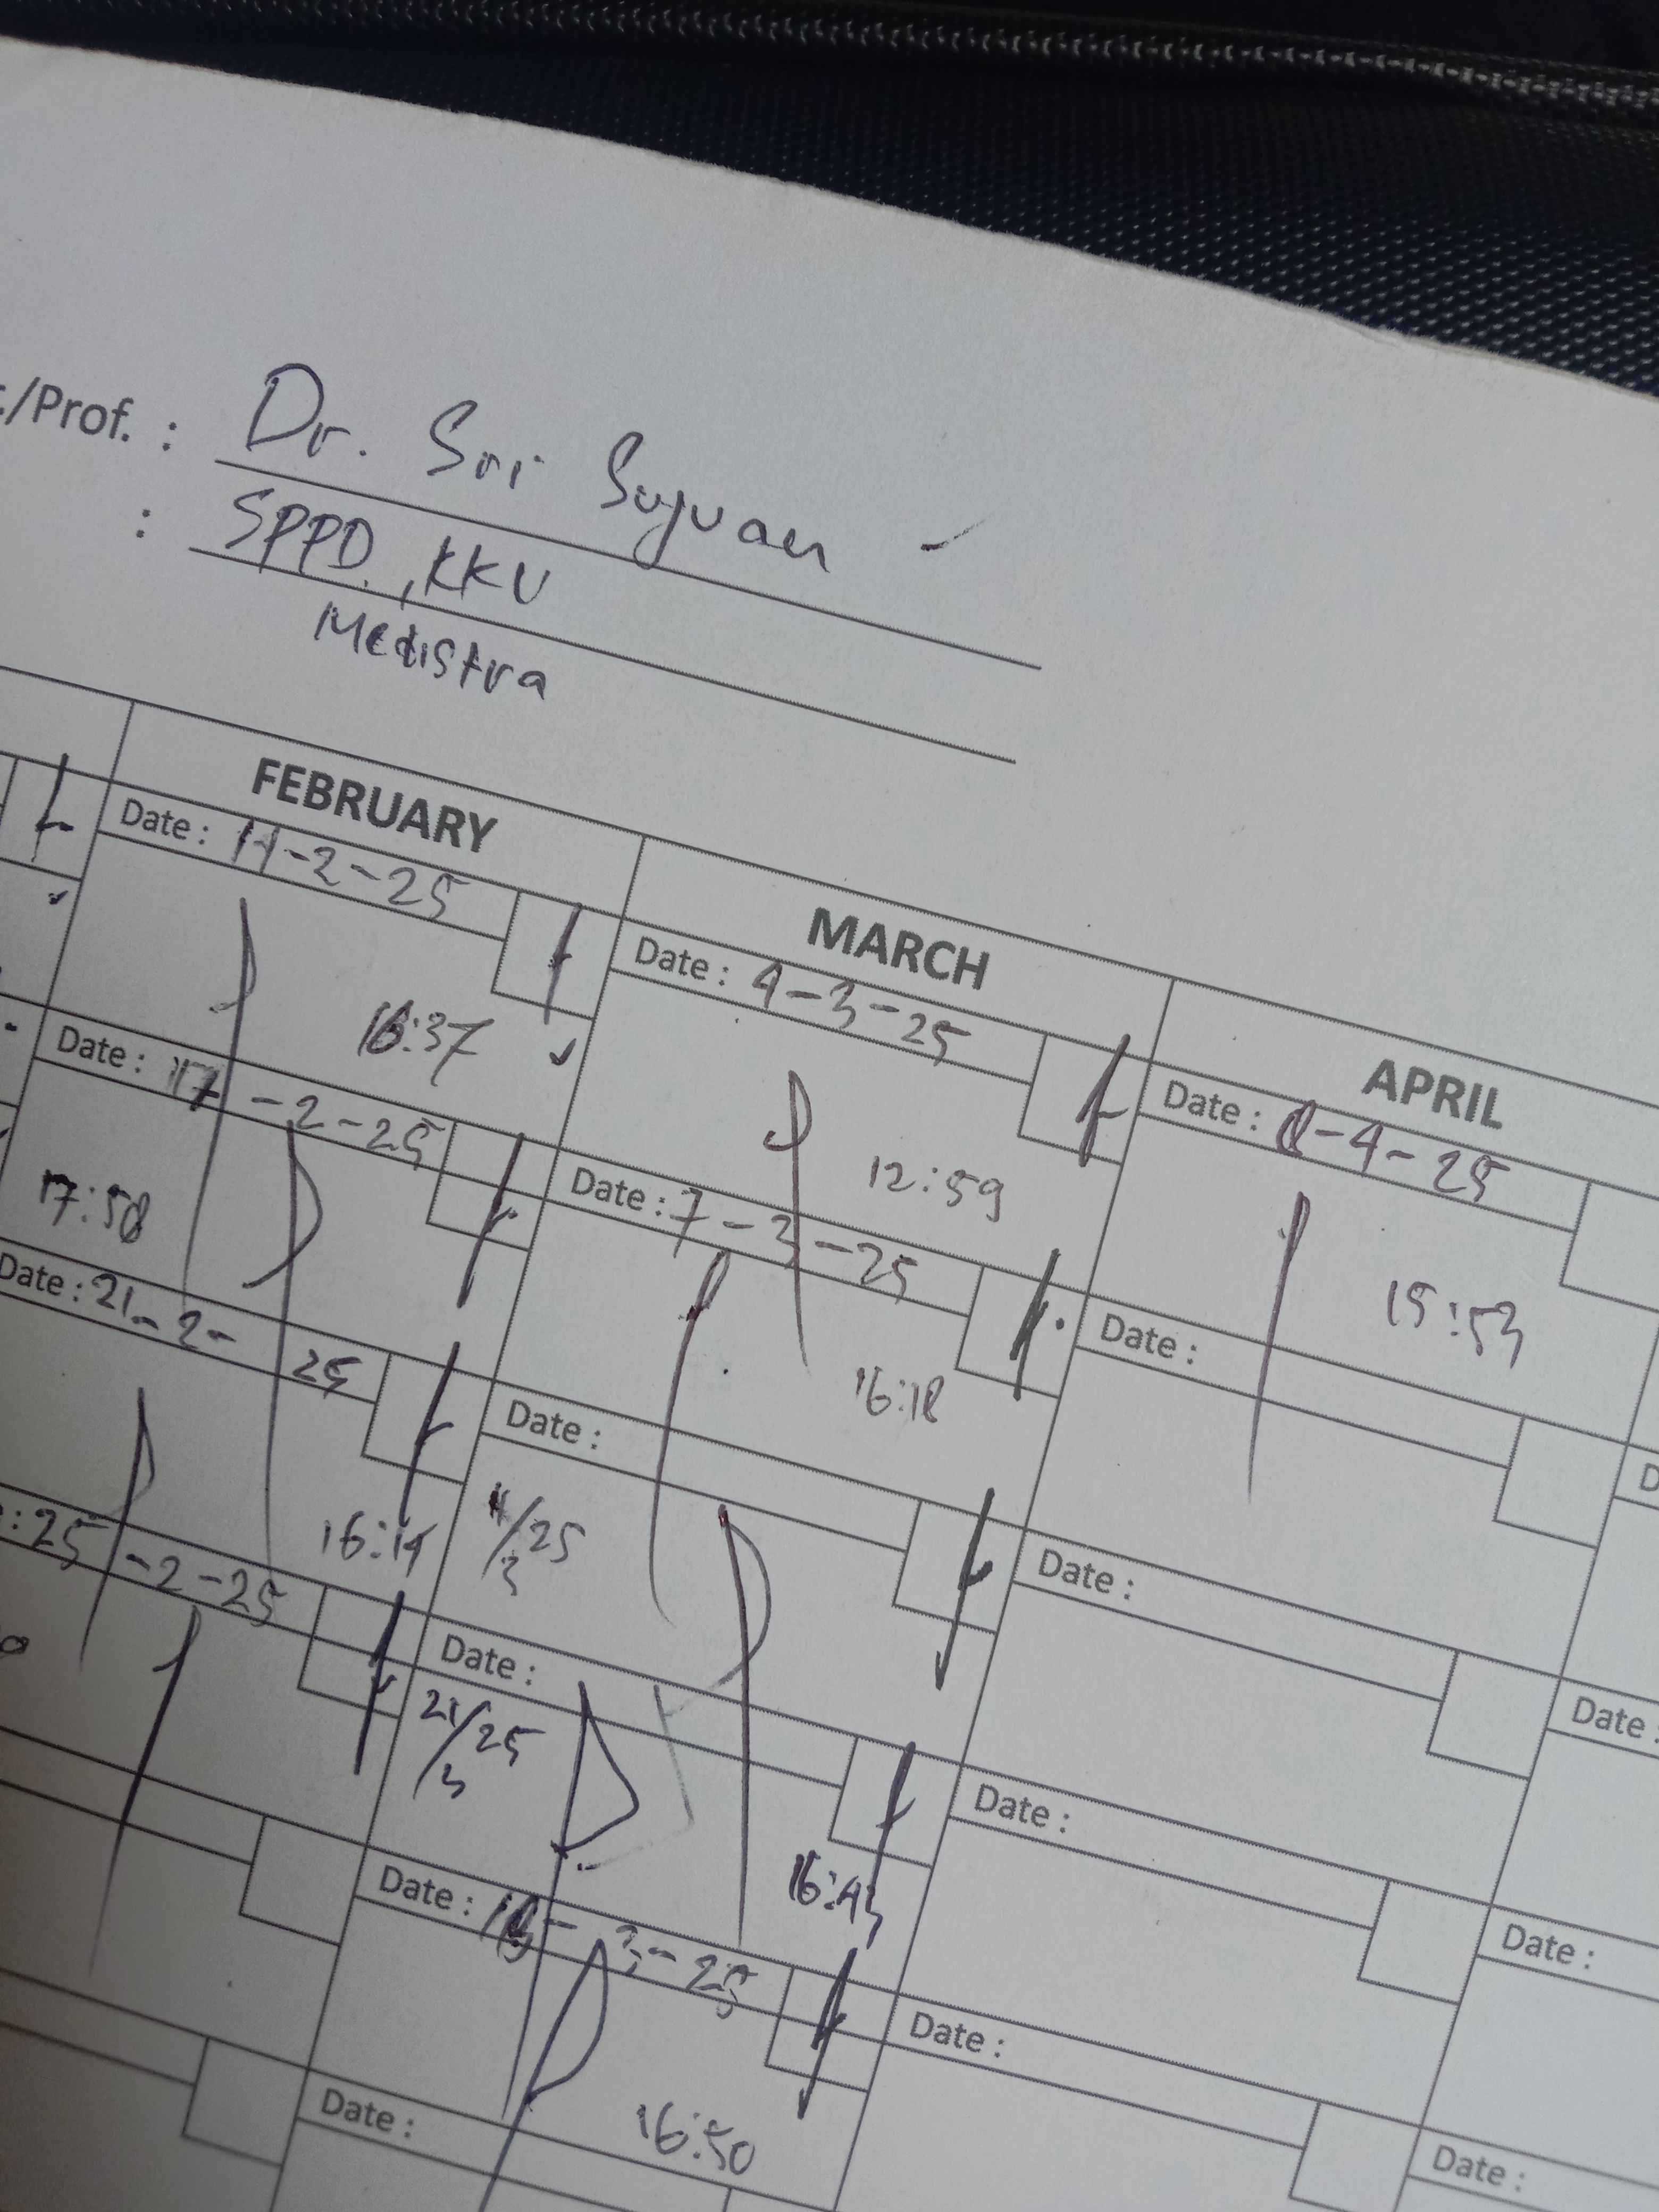 /Prof. : Dr. Sri Suyuan
: SPPD, KKV
Medistra
FEBRUARY
Date : 11-2-25
16:37
Date : 17-2-25
17:58
Date : 21-2-25
16:14
: 25-2-25
MARCH
Date : 4-3-25
12:59
Date : 7-3-25
16:18
Date :
11/3 25
Date :
21/3 25
16:43
Date : 18-3-25
16:50
Date :
APRIL
Date : 8-4-25
15:53
Date :
Date :
Date :
Date :
D
Date :
Date :
Date :